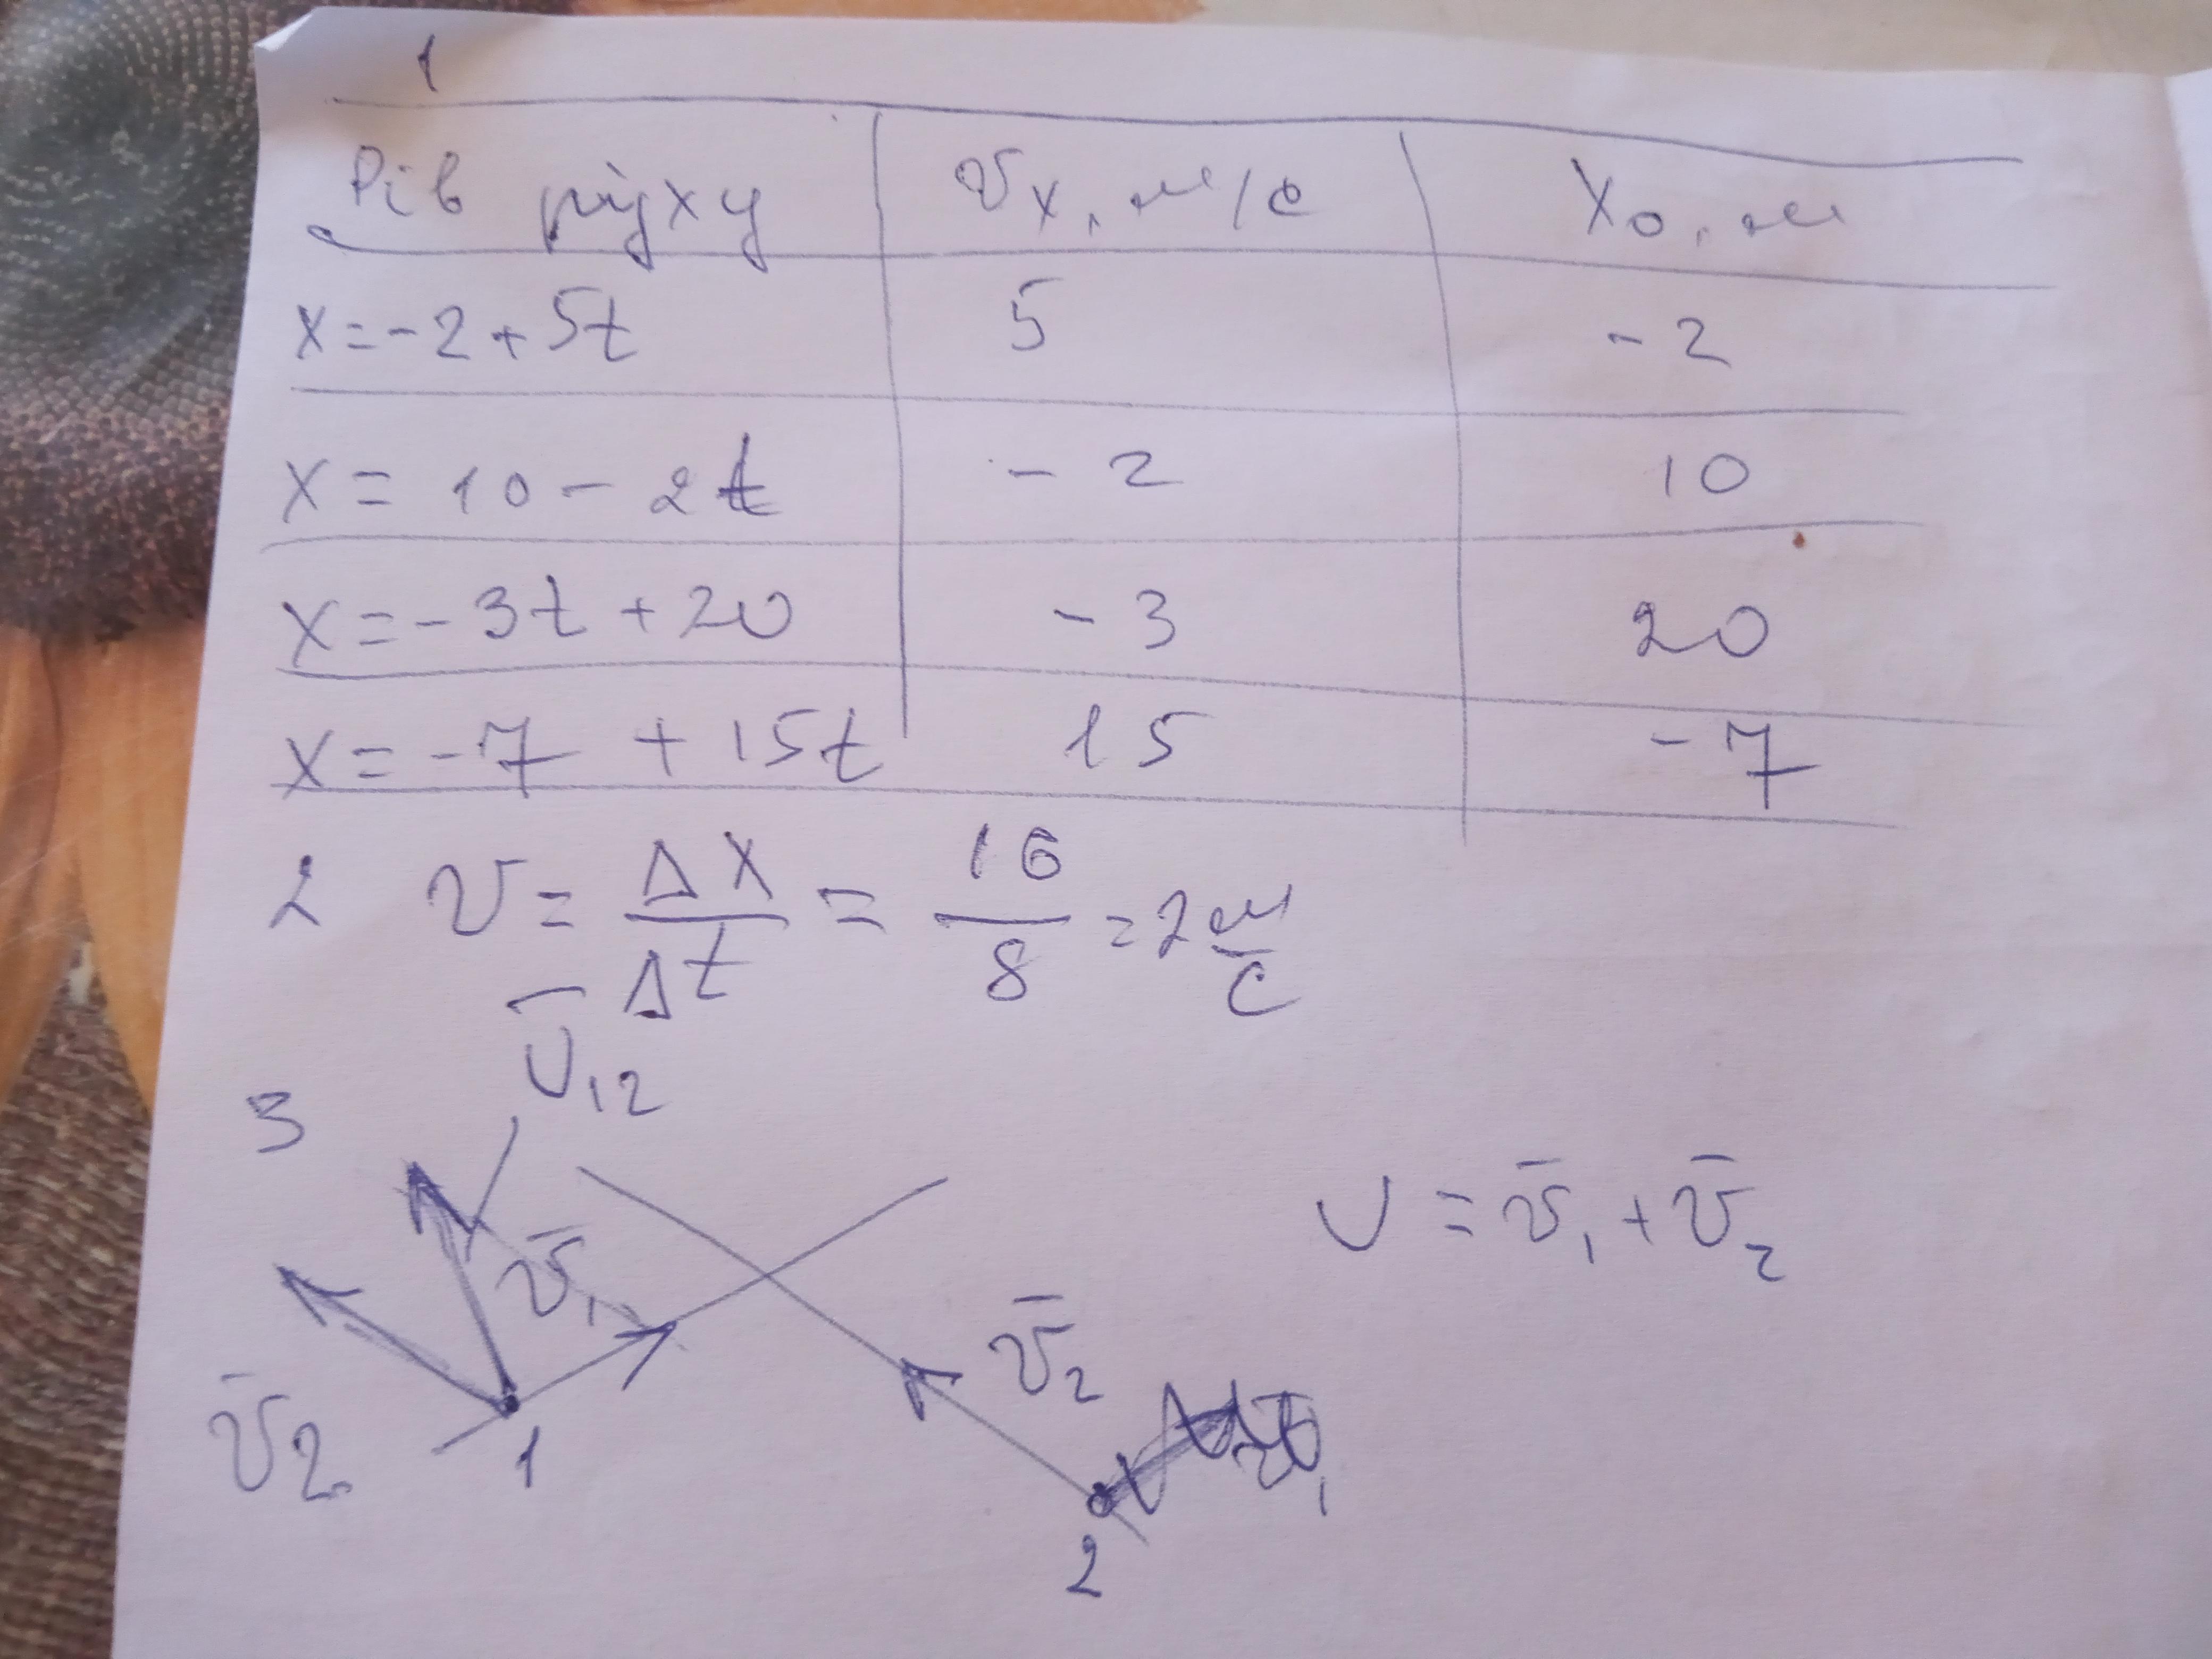 1
Рів руху υx, м/с x0, м
x=-2+5t 5 -2
x=10-2t -2 10
x=-3t+20 -3 20
x=-7+15t 15 -7
2 υ=Δx/Δt=16/8=2м/с
3 υ̅12
υ̅1 U=υ̅1+υ̅2
υ̅2 υ̅2
1 2